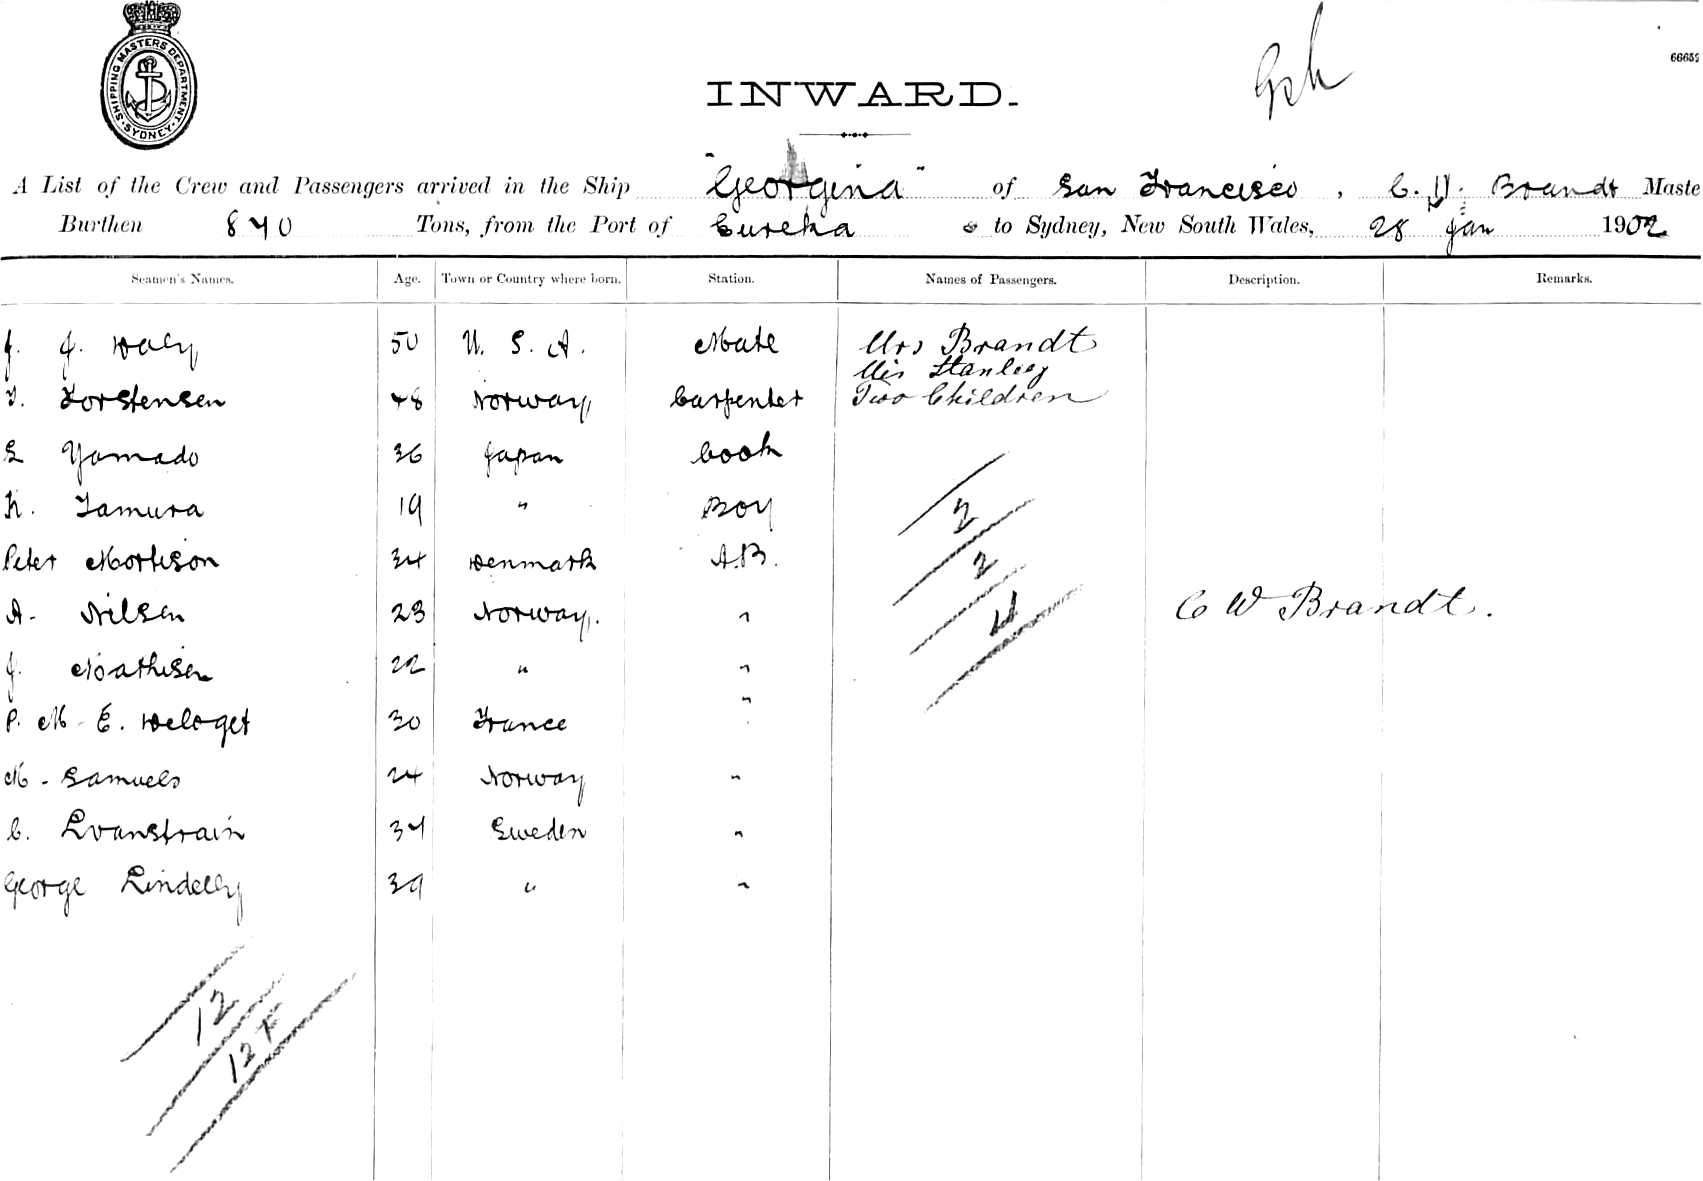 SHIPPING MASTERS DEPARTMENT · SYDNEY ·
66659
INWARD.
A List of the Crew and Passengers arrived in the Ship "Georgina" of San Francisco, C. W. Brandt Maste
Burthen 840 Tons, from the Port of Eureka to Sydney, New South Wales, 28 Jan 1902
Seamen's Names. Age. Town or Country where born. Station. Names of Passengers. Description. Remarks.
J. J. Daly 50 U. S. A. Mate Mrs Brandt
Mis Stanley
T. Torstensen 48 Norway Carpenter Two Children
S Yamado 36 Japan Cook
K. Tamura 19 " Boy
2
Peter Mortison 34 Denmark A.B. 2
A. Nilsen 23 Norway. " 4 C W Brandt.
J. Mathisen 22 " "
P. M. E. Deloget 30 France "
M. Samuels 24 Norway "
C. Lvanstrain 34 Sweden "
George Lindelly 39 " "
12
12 F